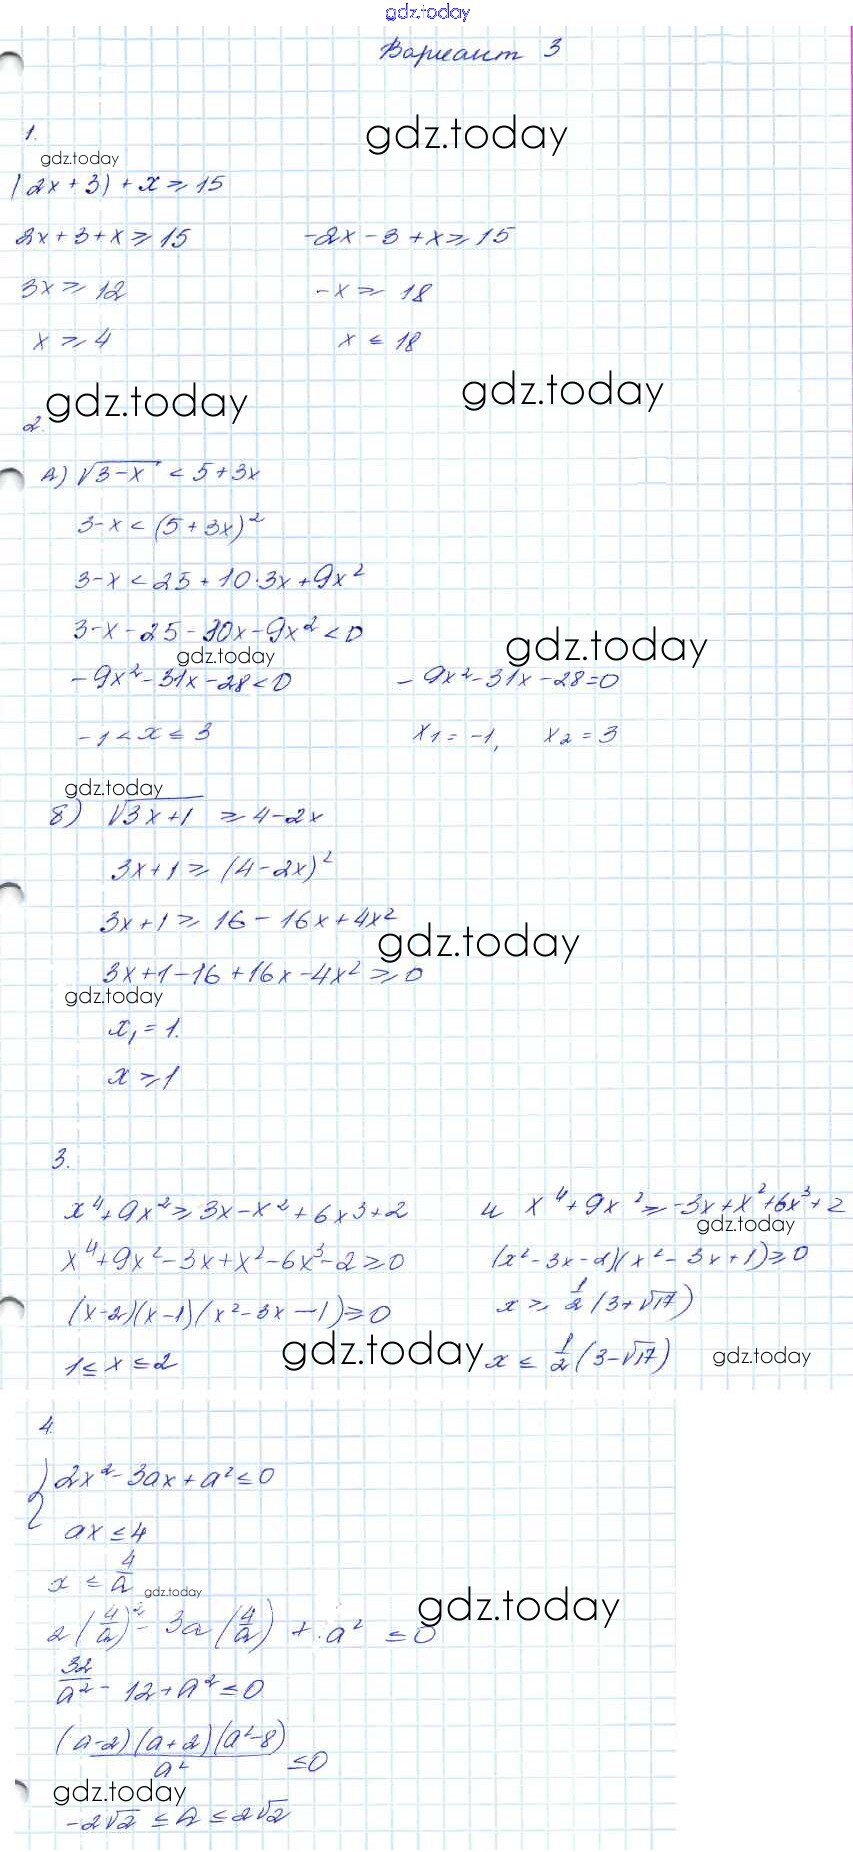 gdz.today
Вариант 3
gdz.today
1.
gdz.today
|2x+3)+x≥15
2x+3+x≥15   -2x-3+x≥15
3x≥12   -x≥18
x≥4   x≤18
gdz.today   gdz.today
2.
А) √3-x < 5+3x
3-x<(5+3x)²
3-x<25+10·3x+9x²
3-x-25-30x-9x²<0
gdz.today   gdz.today
-9x²-31x-28<0   -9x²-31x-28=0
-1<x≤3   x₁=-1, x₂=3
gdz.today
б) √3x+1 ≥4-2x
3x+1≥(4-2x)²
3x+1≥16-16x+4x²
gdz.today
3x+1-16+16x-4x²≥0
gdz.today
x₁=1.
x≥1
3.
x⁴+9x²≥3x-x²+6x³+2   и x⁴+9x²≥-3x+x²+6x³+2
gdz.today
x⁴+9x²-3x+x²-6x³-2≥0   (x²-3x-2)(x²-3x+1)≥0
(x-2)(x-1)(x²-3x-1)≥0   x≥1/2(3+√17)
gdz.today
1≤x≤2   x≤1/2(3-√17)
gdz.today
4.
{2x²-3ax+a²≤0
ax≤4
x≤4/a
gdz.today
gdz.today
2(4/a)²-3a(4/a)+a²≤0
32/a²-12+a²≤0
(a-2)(a+2)(a²-8)/a²≤0
gdz.today
-2√2≤a≤2√2